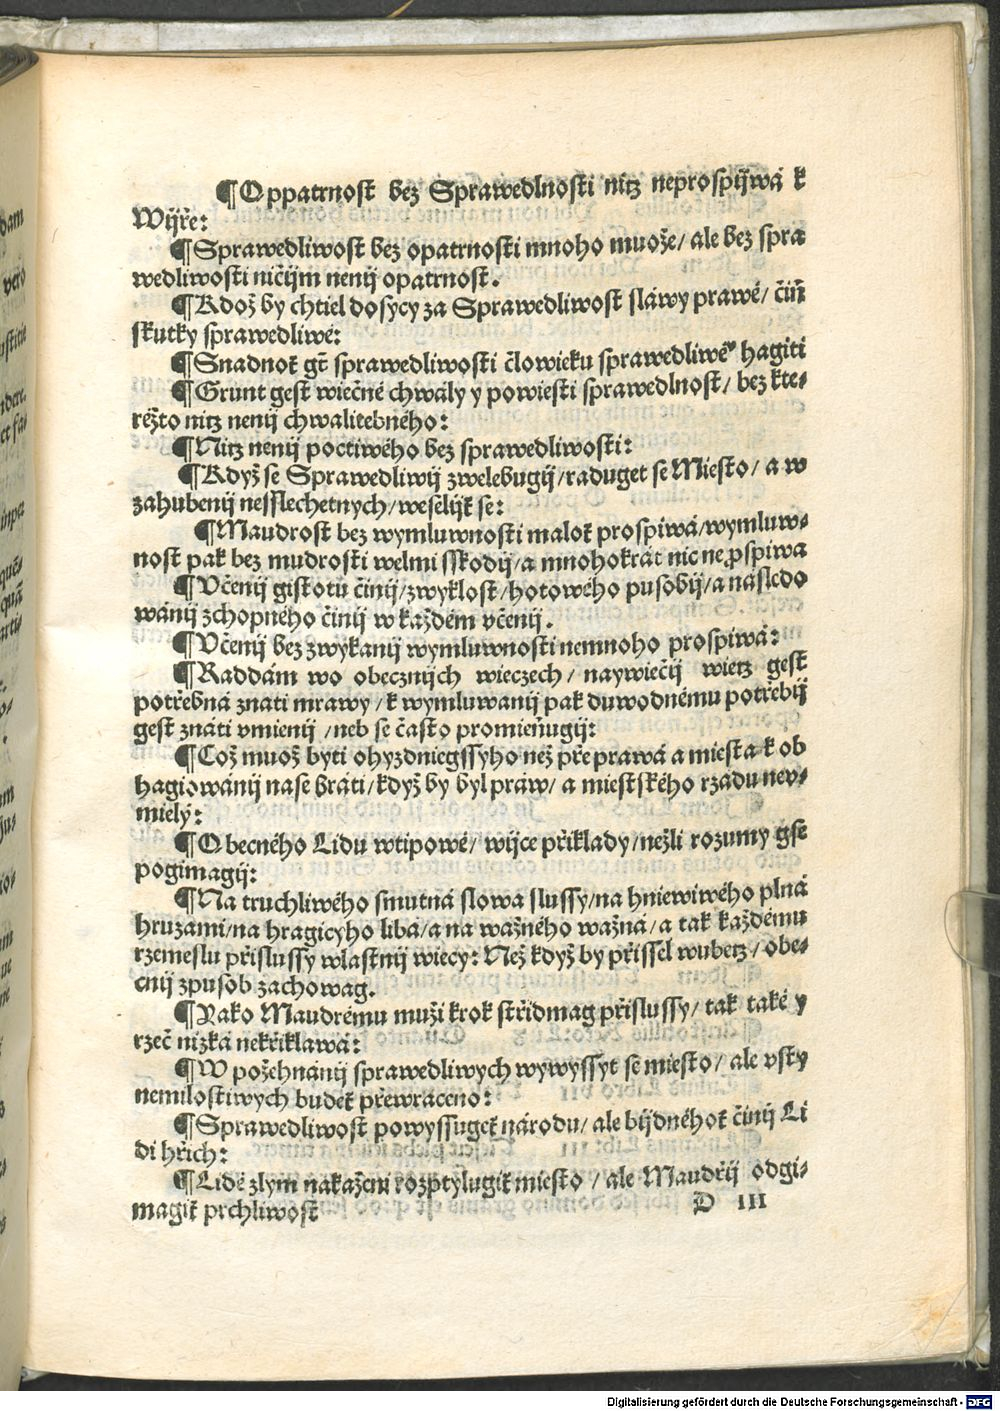 ¶Oppatrnost bez Sprawedlnosti nitz neprospijwá k
Wijře:
¶Sprawedliwost bez opatrnosti mnoho muože/ ale bez spra
wedliwosti ničijm nenij opatrnost.
¶Kdož by chtiel dosycy za Sprawedliwost sláwy prawé/ čiň
skutky sprawedliwé:
¶Snadnoť gť sprawedliwosti člowieku sprawedliwé° hagiti
¶Grunt gest wiečné chwály y powiesti sprawedlnost/ bez kte-
réžto nitz nenij chwalitebného:
¶Nitz nenij poctiwého bez sprawedliwosti:
¶Když se Sprawedliwij zwelebugij/raduget se Miesto/ a w
zahubenij nesslechetnych/weselijť se:
¶Maudrost bez wymluwnosti maloť prospiwá/wymluw-
nost pak bez mudrosti welmi sskodij/a mnohokrát nic neprospiwa
¶Včenij gistotu činij/zwyklost/hotowého pusobij/a násłedo
wánij zchopného činij w každém včenij.
¶Včenij bez zwykanij wymluwnosti nemnoho prospiwá:
¶Raddám wo obecznijch wieczech/ naywiečij wietz gest
potřebná znati mrawy/k wymluwanij pak duwodnému potřebij
gest znáti vmienij /neb se často promieňugij:
¶Což muož byti ohyzdniegssyho než pře prawá a miesta k ob
hagiowánij nase bráti/když by byl práw/ a miestského rzadu nev-
miely:
¶Obecného Lidu wtipowé/ wijce přiklady/nežli rozumy gse
pogimagij:
¶Na truchliwého smutná slowa slussy/na hniewiwého plná
hruzami/na hragicyho libá/a na wážného wážná/a tak každému
rzemeslu přislussy wlastnij wiecy: Než když by přissel wubetz/ obe-
cnij zpusob zachoway.
¶Yako Maudrému muži krok střidmag přislussy/ tak také y
rzeč nizká nekřiklawá:
¶W požehnánij sprawedliwych wywyssyt se miesto/ ale vsty
nemilostiwych budeť přewraceno:
¶Sprawedliwosť powyssugeť národu/ ale bijdnéhoť činij Li
di hřich:
¶Lidé zlym nakaženi rozptylugiť miesto / ale Maudřij odgi-
magiť prchliwost
D III
Digitalisierung gefördert durch die Deutsche Forschungsgemeinschaft - DFG